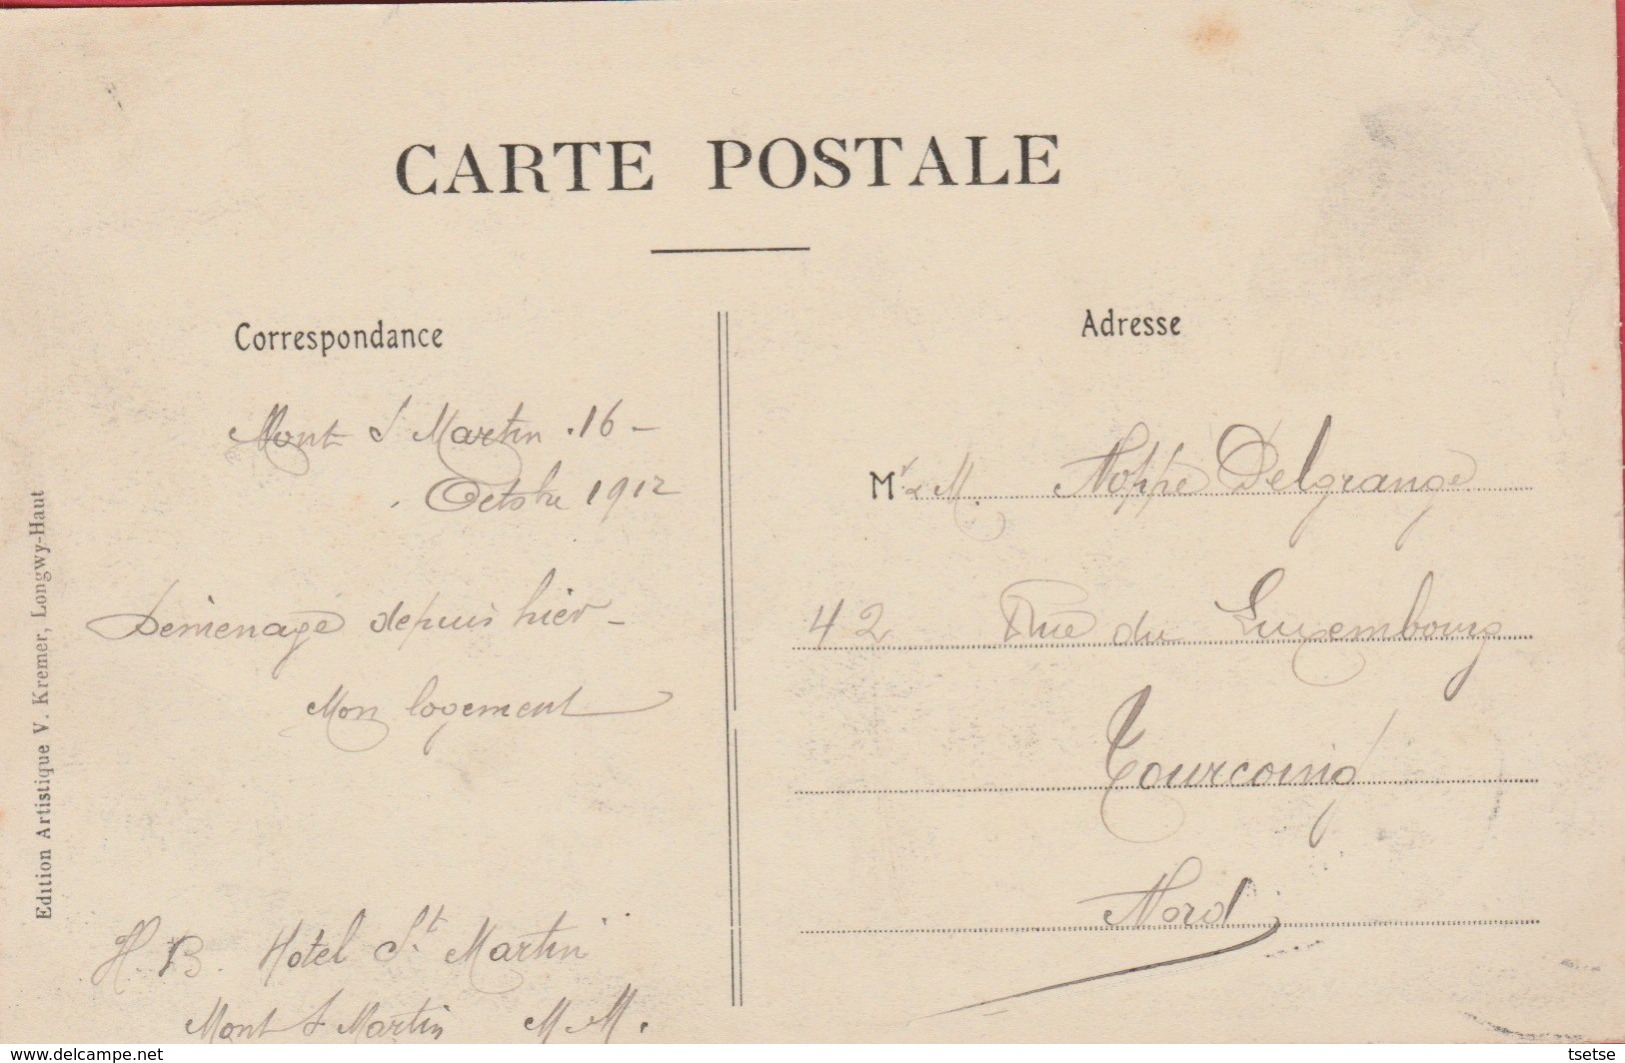 CARTE POSTALE
Correspondance
Mont S Martin . 16 -
Octobre 1912
Déménagé depuis hier -
Mon logement
H. B. Hotel St Martin
Mont S Martin M M.
Adresse
Mr & M. Noppe Delgrange
42 Rue du Luxembourg
Tourcoing
Nord
Edition Artistique V. Kremer, Longwy-Haut
www.delcampe.net
tsetse